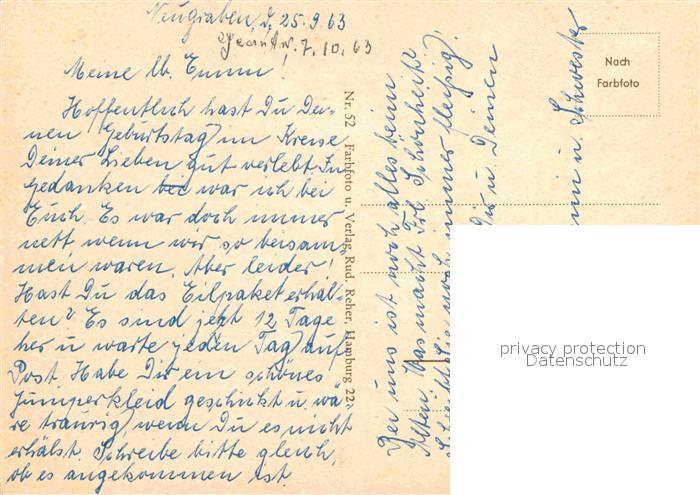 Neugraben, d. 25.9.63
Geantw. 7.10.63
Meine lb. Emmi!
Hoffentlich hast Du Dei-
nen Geburtstag im Kreise
Deiner Lieben gut verlebt. In
gedanken bei war ich bei
Euch. Es war doch immer
nett wenn wir so beisam-
men waren. Aber leider!
Hast Du das Eilpaket erhal-
ten? Es sind jetzt 12 Tage
her u warte jeden Tag auf
Post. Habe Dir ein schönes
Jumperkleid geschickt u. wä-
re traurig, wenn Du es nicht
erhälst. Schreibe bitte gleich,
ob es angekommen ist.
Nr. 52 Farbfoto u. Verlag, Rud. Reher, Hamburg 22
Bei uns ist noch alles beim
Alten. Was macht Frl. Schönheit?
Schreibt sie noch immer fleißig?
Dir u. Deinen
u. Schwester
Nach
Farbfoto
privacy protection
Datenschutz